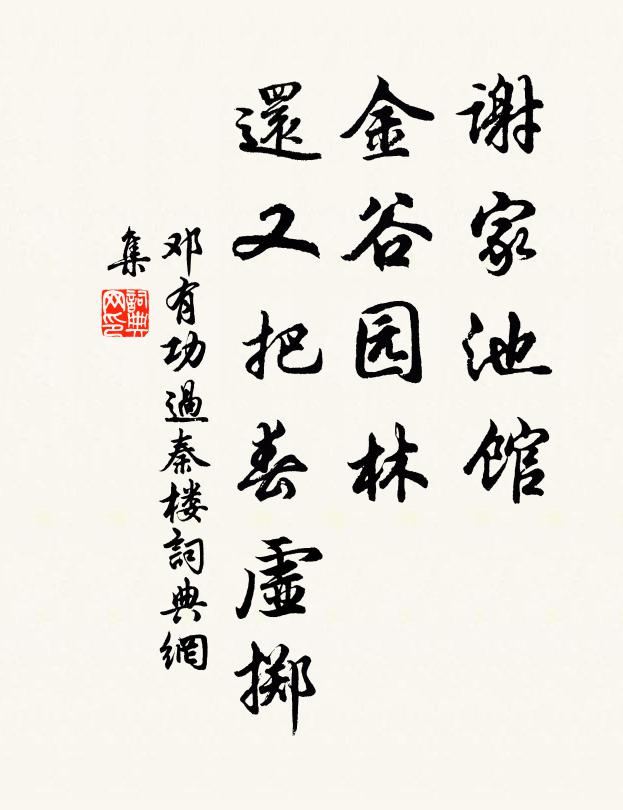 谢家池馆
金谷园林
還又把春虚掷
邓有功過秦楼詞典網
集
詞典网印